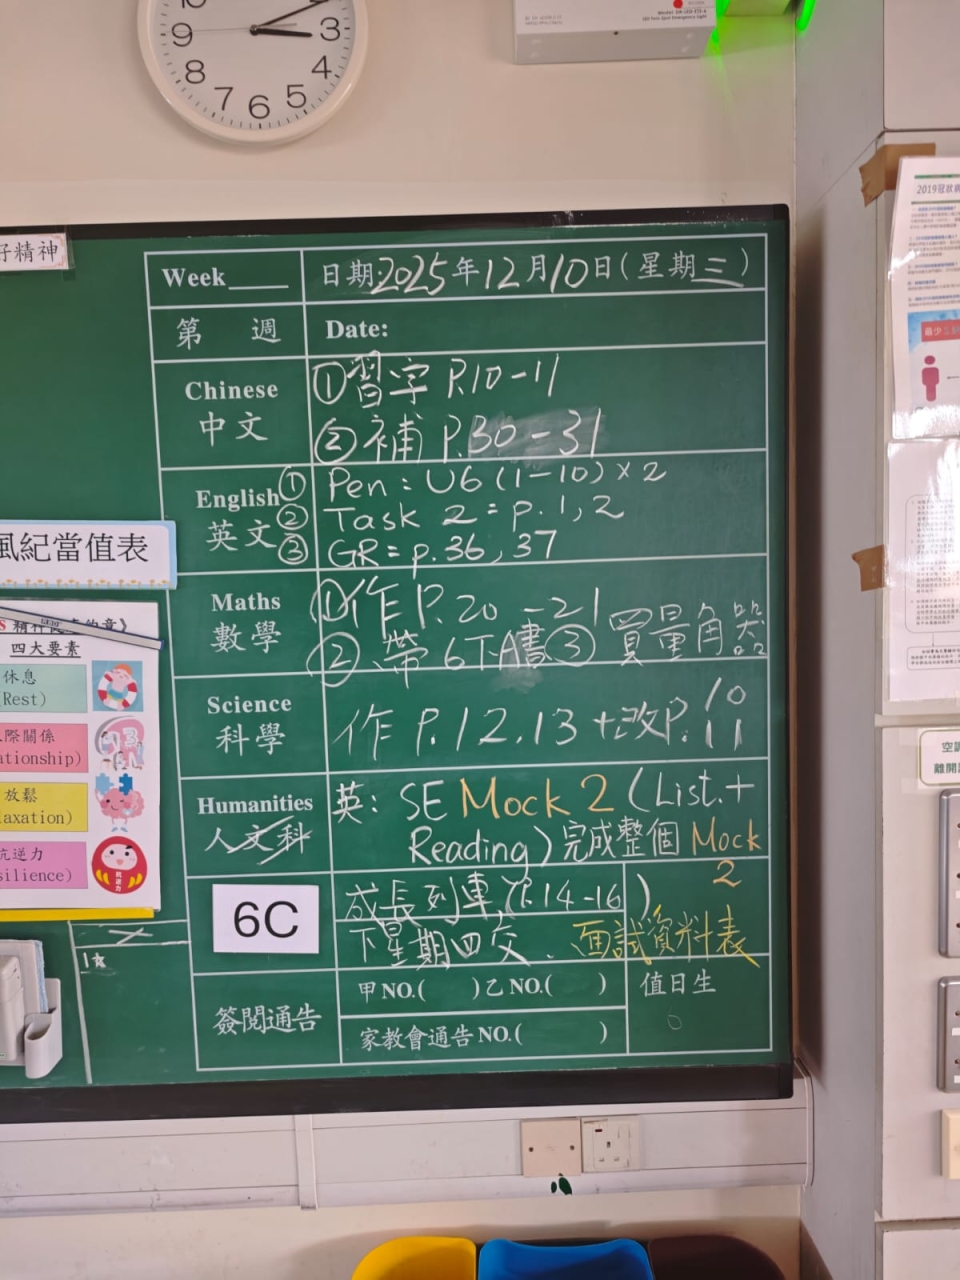 10
2
9
3
8
4
7
6
5
好精神
Week____
日期:2025年12月10日(星期三)
第 週
Date:
Chinese
中文
①習字 P.10-11
②補 P.30-31
English
英文
① Pen: U6 (1-10) x 2
② Task 2: p.1, 2
③ GR: p.36, 37
Maths
數學
①作 P.20-21
②帶 6下A書 ③買量角器
Science
科學
作 P.12.13 +改P.10
11
Humanities
人文科
英: SE Mock 2 (List.+
Reading)完成整個 Mock
2
6C
成長列車(P.14-16)
下星期四交. 面試資料表
簽閱通告
甲NO.( )乙NO.( )
值日生
家教會通告NO.( )
風紀當值表
四大要素
休息
(Rest)
人際關係
放鬆
抗逆力
2019冠狀
最少
空調
離開